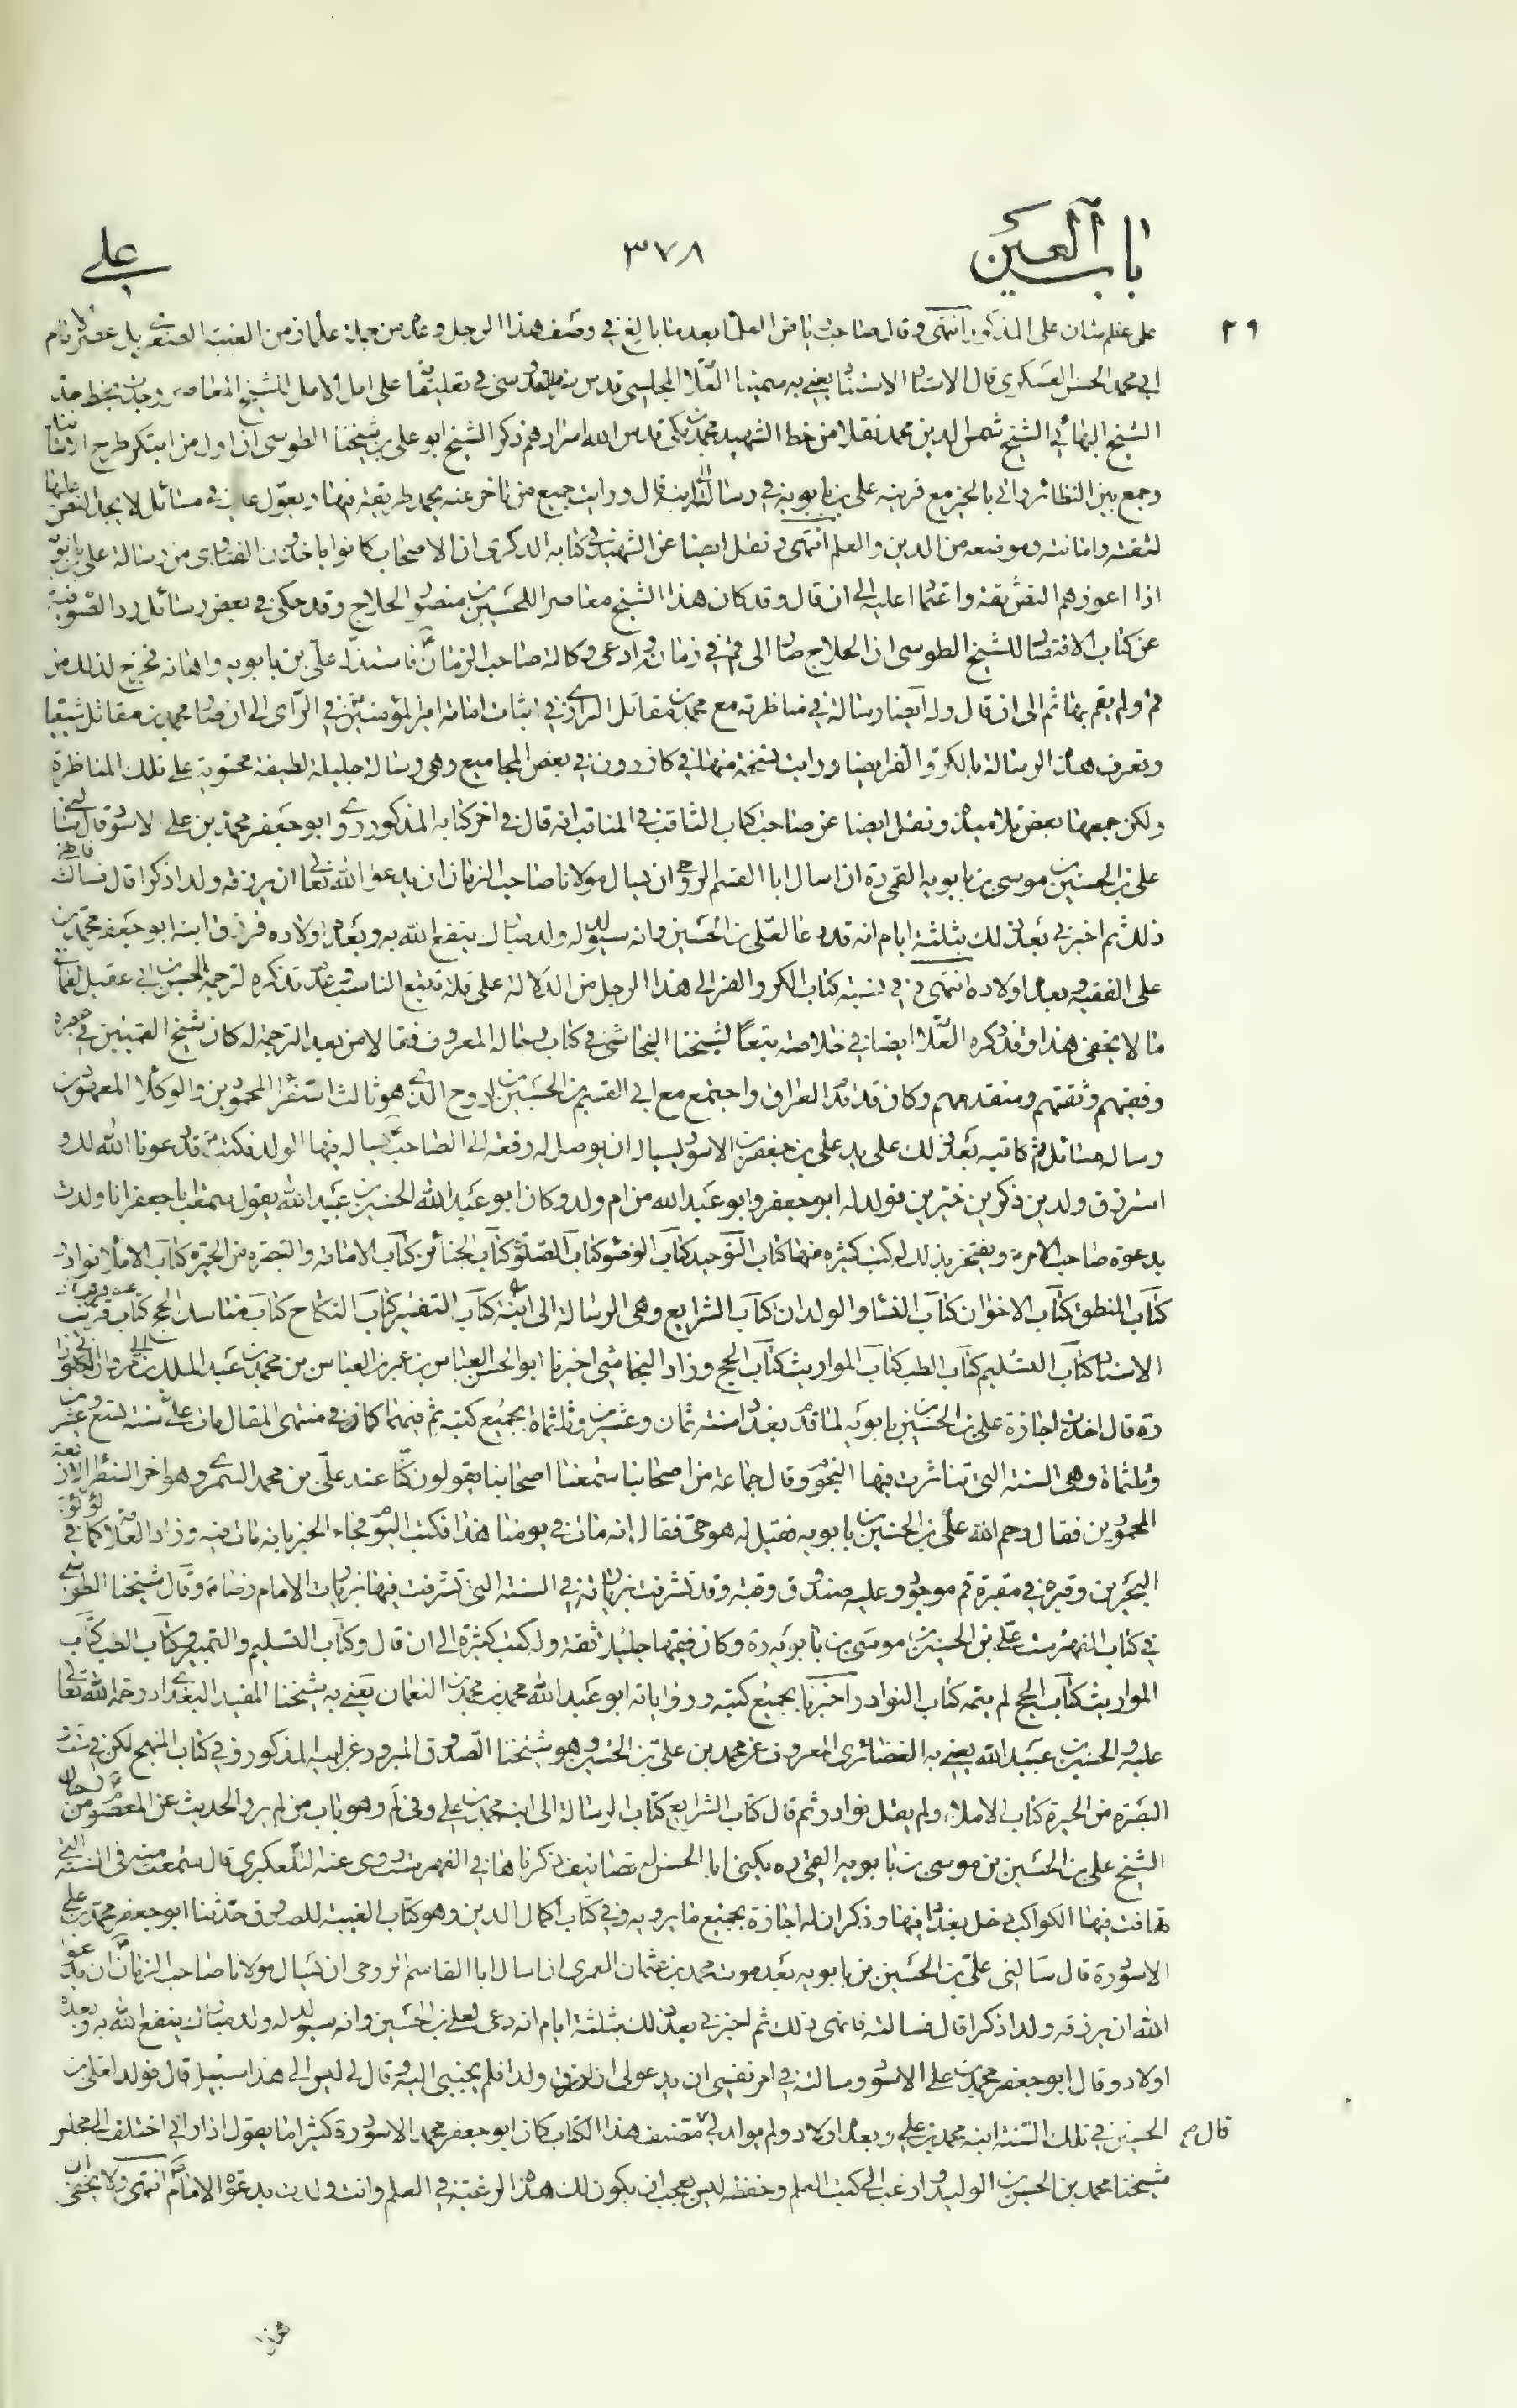 باب العين
٣٧٨
علي
٢٩
على عظم شان على المذكور انتهى وقال صاحب رياض العلما بعد ما بالغ في وصف هذا الرجل وعده من جملة علمائنا من الغيبة الصغرى بل عصر امام
ابي محمد الحسن العسكري قال الاستاد الاستناد يعني به سمينا العلامة المجلسي قدس سره القدسي في تعليقاته على امل الامل للشيخ المعاصر وجدت بخط جد
الشيخ البهائي الشيخ شمس الدين محمد نقلا من خط الشهيد محمد بن مكي قدس الله اسرارهم ذكر الشيخ ابو علي بن شيخنا الطوسي ان اول من ابتكر طرح الاسناد
وجمع بين النظائر واتى بالخبر مع قرينه علي بن بابويه في رسالته الى ابنه قال ورايت جميع من تاخر عنه يحمد طريقته فيها ويعول عليه في مسائل لا يجد النص عليها
لثقته وامانته وموضعه من الدين والعلم انتهى ونقل ايضا عن الشهيد في كتابه الذكرى ان الاصحاب كانوا ياخذون الفتاوى من رسالة علي بن بابويه
اذا اعوزهم النص ثقة واعتمادا عليه الى ان قال وقد كان هذا الشيخ معاصرا للحسين بن منصور الحلاج وقد حكى في بعض رسائل رد الصوفية
عن كتاب الاقتصاد للشيخ الطوسي ان الحلاج صار الى قم في زمانه وادعى وكالة صاحب الزمان ع فاستذله علي بن بابويه واهانه فخرج لذلك من
قم ولم يقم بها ثم الى ان قال وله ايضا رسالة في مناظرته مع محمد بن مقاتل الرازي في اثبات امامة امير المؤمنين ع في الرأى الى ان صار محمد بن مقاتل شيعيا
وتعرف هذه الرسالة بالكر والفر ايضا ورايت نسخة منها في كازرون في بعض المجاميع وهي رسالة جليلة لطيفة محتوية على تلك المناظرة
ولكن جمعها بعض تلاميذه ونقل ايضا عن صاحب كتاب الثاقب في المناقب انه قال في اخر كتابه المذكور روى ابو جعفر محمد بن علي الاسود قال سألني
علي بن الحسين بن موسى بن بابويه القمي ره ان اسال ابا القسم الروحي ان يسال مولانا صاحب الزمان ان يدعو الله تعالى ان يرزقه ولدا ذكرا قال فسالته
ذلك ثم اخبرني بعد ذلك بثلثة ايام انه قد دعا لعلي بن الحسين وانه سيولد له ولد مبارك ينفع الله به وبعده اولاده فرزق ابنه ابو جعفر محمد بن
علي الفقيه وبعده اولاده انتهى وفي نسبة كتاب الكر والفر الى هذا الرجل من الدلالة على قلة تتبع الناسب عند تذكره لترجمة الحسن بن ابي عقيل العماني
ما لا يخفى هذا وقد ذكره العلامة ايضا في خلاصته تبعًا لشيخنا النجاشي في كتاب رجاله المعروف فقالا من بعد الترجمة له كان شيخ القميين في عصره
وفقيههم وثقتهم ومتقدمهم وكان قد قدم العراق واجتمع مع ابي القسم بن الحسين بن روح الذي هو ثالث السفراء المحمودين والوكلاء المعهودين
وساله مسائل ثم كاتبه بعد ذلك على يد علي بن جعفر بن الاسود يساله ان يوصل له رقعة الى الصاحب ع يساله فيها الولد فكتب ع قد دعونا الله لك و
سترزق ولدين ذكرين خيرين فولد له ابو جعفر وابو عبد الله من ام ولد وكان ابو عبد الله الحسين بن عبيد الله يقول سمعت ابا جعفر انا ولدت
بدعوة صاحب الامر ع ويفتخر بذلك له كتب كثيرة منها كتاب التوحيد كتاب الوضوء كتاب الصلوة كتاب الجنائز كتاب الامامة والتبصرة من الحيرة كتاب الاملاء نوادر
كتاب المنطق كتاب الاخوان كتاب النساء والولدان كتاب الشرايع وهي الرسالة الى ابنه كتاب التفسير كتاب النكاح كتاب مناسك الحج كتاب قرب
الاسناد كتاب التسليم كتاب الطب كتاب المواريث كتاب الحج وزاد النجاشي اخبرنا ابو الحسن العباس بن عمر بن العباس بن محمد بن عبد الملك بن ابي مروان الكلوذاني
ره قال اخذت اجازة علي بن الحسين بن بابويه لما قدم بغداد سنة ثمان وعشرين وثلثمائة بجميع كتبه ثم فيهما كما في منتهى المقال مات علي سنة تسع وعشرين
وثلثمائة وهي السنة التي تناثرت فيها النجوم وقال جماعة من اصحابنا سمعنا اصحابنا يقولون كنا عند علي بن محمد السمري وهو اخر السفراء الاربعة
المحمودين فقال رحم الله علي بن الحسين بن بابويه فقيل له هو حي فقال انه مات في يومنا هذا فكتب اليوم فجاء الخبر بانه مات فيه وزاد العلامة كما في لؤلؤة
البحرين وقبره في مقبرة قم موجود وعليه صندوق وقبة وقد تشرفت بزيارته في السنة التي تشرفت فيها بزيارت الامام رضا ع وقال شيخنا الطوسي
في كتاب الفهرست علي بن الحسين بن موسى بن بابويه ره وكان فقيها جليلا ثقة وله كتب كثيرة الى ان قال وكتاب التسليم والتميز وكتاب الطب كتاب
المواريث كتاب الحج لم يتمه كتاب النوادر اخبرنا بجميع كتبه ورواياته ابو عبد الله محمد بن محمد بن النعمان يعني به شيخنا المفيد البغدادي رحمة الله تعالى
عليه والحسين بن عبيد الله يعني به الغضائري المعروف عن محمد بن علي بن الحسين وهو شيخنا الصدوق المبرور عن ابيه المذكور وفي كتاب المنهج لكن في ست
التبصرة من الحيرة كتاب الاملاء ولم يقل نوادر ثم قال كتاب الشرايع كتاب الرسالة الى ابنه محمد بن علي وفي لم وهو باب من لم يرو الحديث عن المعصومين من رجال
الشيخ علي بن الحسين بن موسى بن بابويه القمي ره يكنى ابا الحسن له تصانيف ذكرناها في الفهرست روى عنه التلعكبري قال سمعت منه في السنة التي
تهافتت فيها الكواكب دخل بغداد فيها وذكر ان له اجازة بجميع ما يرويه وفي كتاب اكمال الدين وهو كتاب الغيبة للصدوق حدثنا ابو جعفر محمد بن علي
الاسود ره قال سالني علي بن الحسين بن بابويه بعد موت محمد بن عثمان العمري ان اسال ابا القاسم الروحي ان يسال مولانا صاحب الزمان ع ان يدعو
الله ان يرزقه ولدا ذكرا قال فسالته فانهى ذلك ثم اخبرني بعد ذلك بثلثة ايام انه دعى لعلي بن الحسين وانه سيولد له ولد مبارك ينفع الله به وبعده
اولاد وقال ابو جعفر محمد بن علي الاسود وسالته في امر نفسي ان يدعو لي ان ارزق ولدا فلم يجبني اليه وقال لي ليس الى هذا سبيل قال فولد لعلي بن
الحسين في تلك السنة ابنه محمد بن علي وبعده اولاد ولم يولد لي قال مصنف هذا الكتاب كان ابو جعفر محمد الاسود ره كثيرا ما يقول اذا راني اختلف الى مجلس
شيخنا محمد بن الحسن بن الوليد وارغب الى كتب العلم وحفظه ليس بعجب ان يكون لك هذه الرغبة في العلم وانت ولدت بدعوة الامام ع انتهى ولا يخفى ان